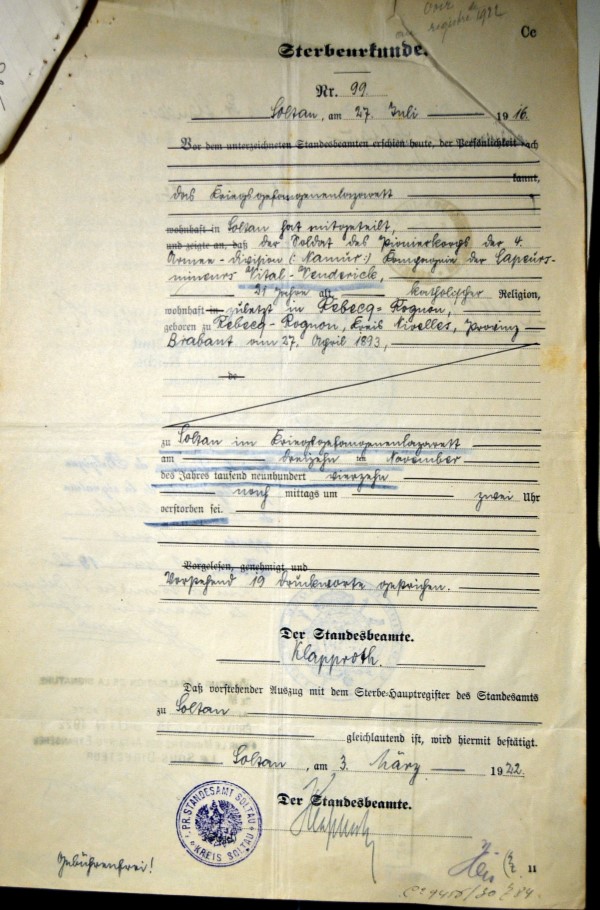 au registre 1922
Cc
Sterbeurkunde.
Nr. 99.
Soltau, am 27. Juli 1916.
Vor dem unterzeichneten Standesbeamten erschien heute, der Persönlichkeit nach
kannt,
das Kriegsgefangenenlazarett
wohnhaft in Soltau hat mitgeteilt,
und zeigte an, daß der Soldat des Pionierkorps der 4.
Armee-Division (: Namur :) Kompagnie der Sapeurs-
mineurs Vital-Venderick,
21 Jahre alt, katholischer Religion,
wohnhaft in zuletzt in Rebecq-Rognon,
geboren zu Rebecq-Rognon, Kreis Nivelles, Provinz
Brabant am 27. April 1893,
de
zu Soltau im Kriegsgefangenenlazarett
am dreizehn ten November
des Jahres tausend neunhundert vierzehn
nach mittags um zwei Uhr
verstorben sei.
Vorgelesen, genehmigt und
Vorstehend 19 Druckworte gestrichen.
Der Standesbeamte.
Klapproth.
Daß vorstehender Auszug mit dem Sterbe-Hauptregister des Standesamts
zu Soltau
gleichlautend ist, wird hiermit bestätigt.
Soltau, am 3. März 1922
Der Standesbeamte.
Klapproth
PR. STANDESAMT SOLTAU
KREIS SOLTAU
Gebührenfrei!
11